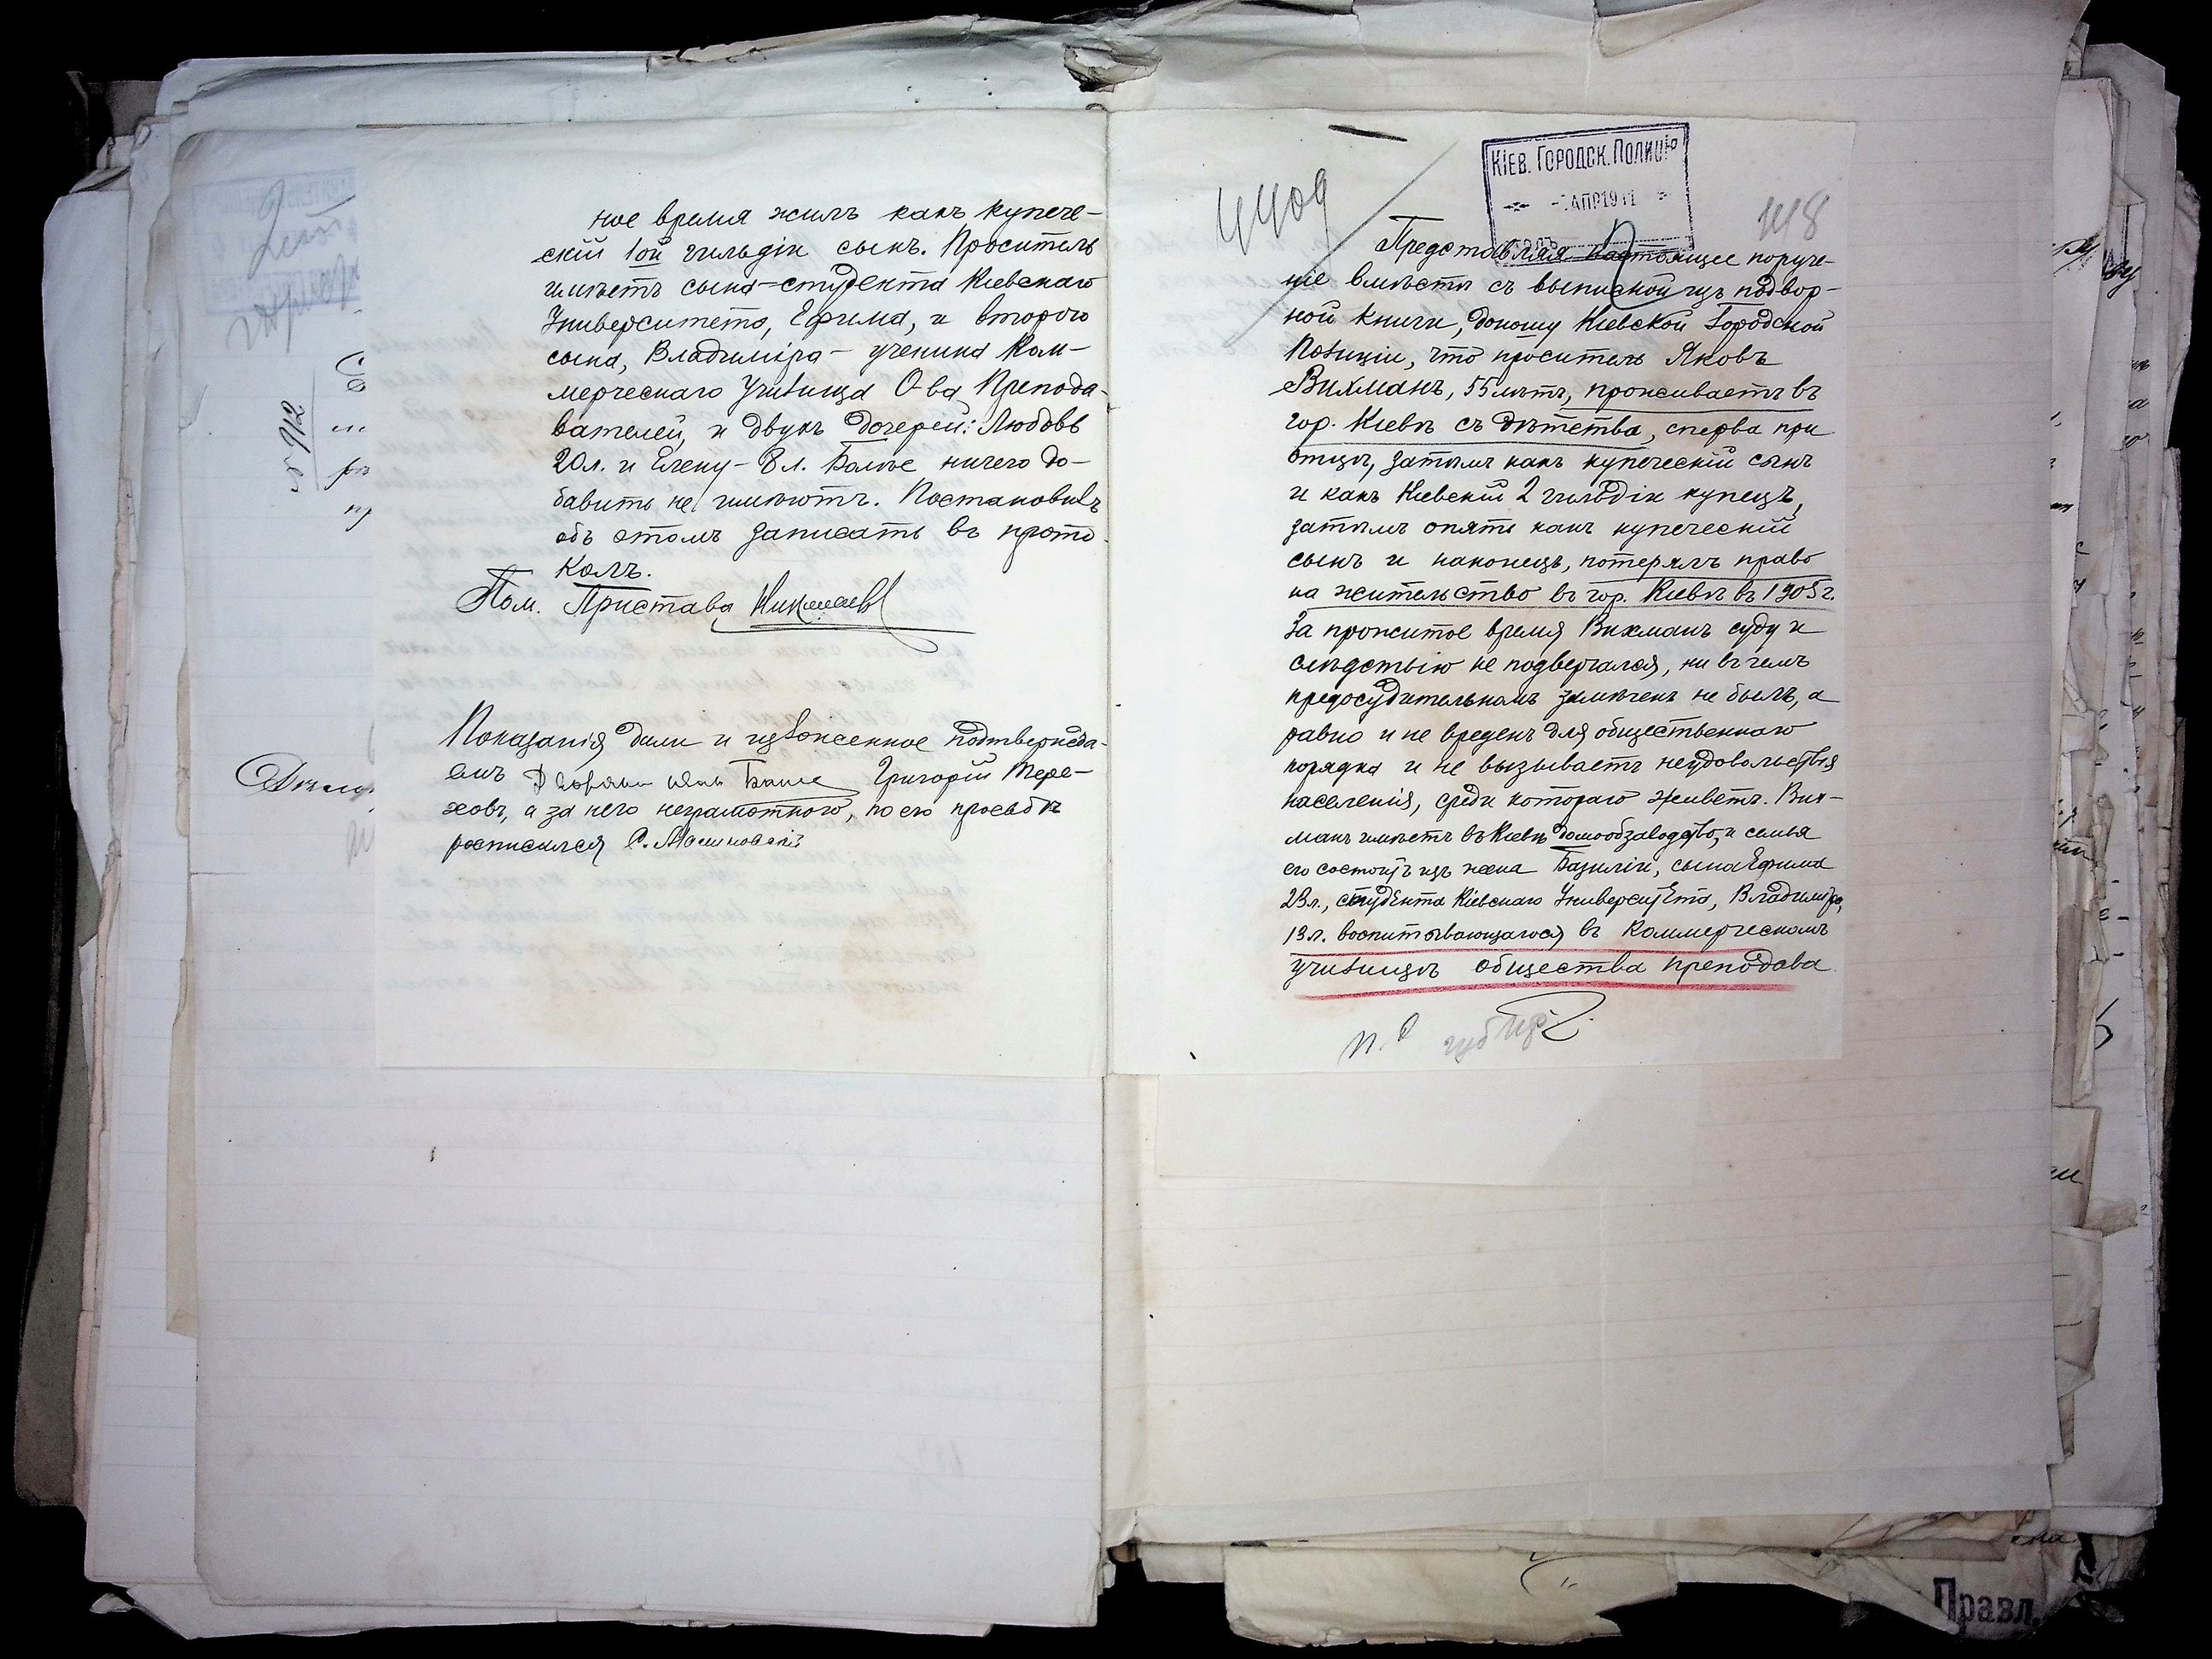 ное время жилъ какъ купече-
скій 1ой гильдіи сынъ. Проситель
имѣетъ сына-студента Кіевскаго
Университета, Ефима, и второго
сына, Владиміра - ученика Ком-
мерческаго Училища О-ва Препода-
вателей, и двухъ дочерей: Любовь
20 л. и Елену - 8 л. Болѣе ничего до-
бавить не имѣютъ. Постановилъ
объ этомъ записать въ прото-
колъ.
Пом. Пристава Николаевъ
Показанія дали и изложенное подтвержда-
емъ Григорій Тере-
ховъ, а за него неграмотного, по его просьбѣ
росписался С.
4409
КІЕВ. ГОРОДСК. ПОЛИЦІЯ
АПР 1911
148
Представляя настоящее поруче-
ніе вмѣстѣ съ выпиской изъ подвор-
ной книги, доношу Кіевской Городской
Полиціи, что проситель Яковъ
Вихманъ, 55 лѣтъ, проживаетъ въ
гор. Кіевѣ съ дѣтства, сперва при
отцѣ, затѣмъ какъ купеческій сынъ
и какъ Кіевскій 2 гильдіи купецъ,
затѣмъ опять какъ купеческій
сынъ и наконецъ, потерялъ право
на жительство въ гор. Кіевѣ въ 1905 г.
За прожитое время Вихманъ суду и
слѣдствію не подвергался, ни въ чемъ
предосудительномъ замѣченъ не былъ, а
равно и не вреденъ для общественнаго
порядка и не вызываетъ неудовольствія
населенія, среди котораго живетъ. Вих-
манъ имѣетъ въ Кіевѣ домообзаводство, и семья
его состоитъ изъ жены Базиліи, сына Ефима
23 л., студента Кіевскаго Университета, Владиміра,
13 л. воспитывающагося въ Коммерческомъ
училищѣ общества преподава
Правл.